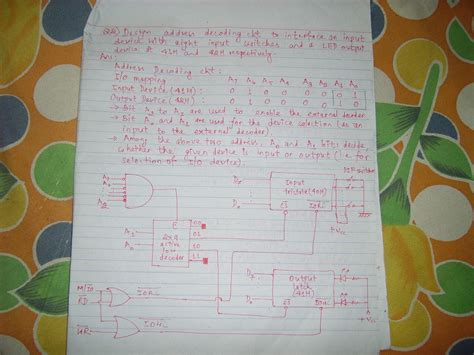 Q4) Design address decoding ckt to interface an input
device with eight input switches and a LED output
device at 41H and 42H respectively.
Ans:
Address Decoding ckt:
I/O mapping A7 A6 A5 A4 A3 A2 A1 A0
Input Device (41H) : 0 1 0 0 0 0 0 1
Output Device (42H) : 0 1 0 0 0 0 1 0
→ A7 to A2 are used to enable the external decoder
→ Bit A1 and A0 are used for the device selection (as an
input to the external decoder)
→ Among the above two address, A0 and A1 bits decide,
whether the given device is input or output (i.e. for
selection of I/O device).
DIP switches
Input
tristate
E
00
01
10
11
2x4
active
low
decoder
A1
A0
+Vcc
Output
latch
M/IO
RD
IOR
WR
IOW
+Vcc